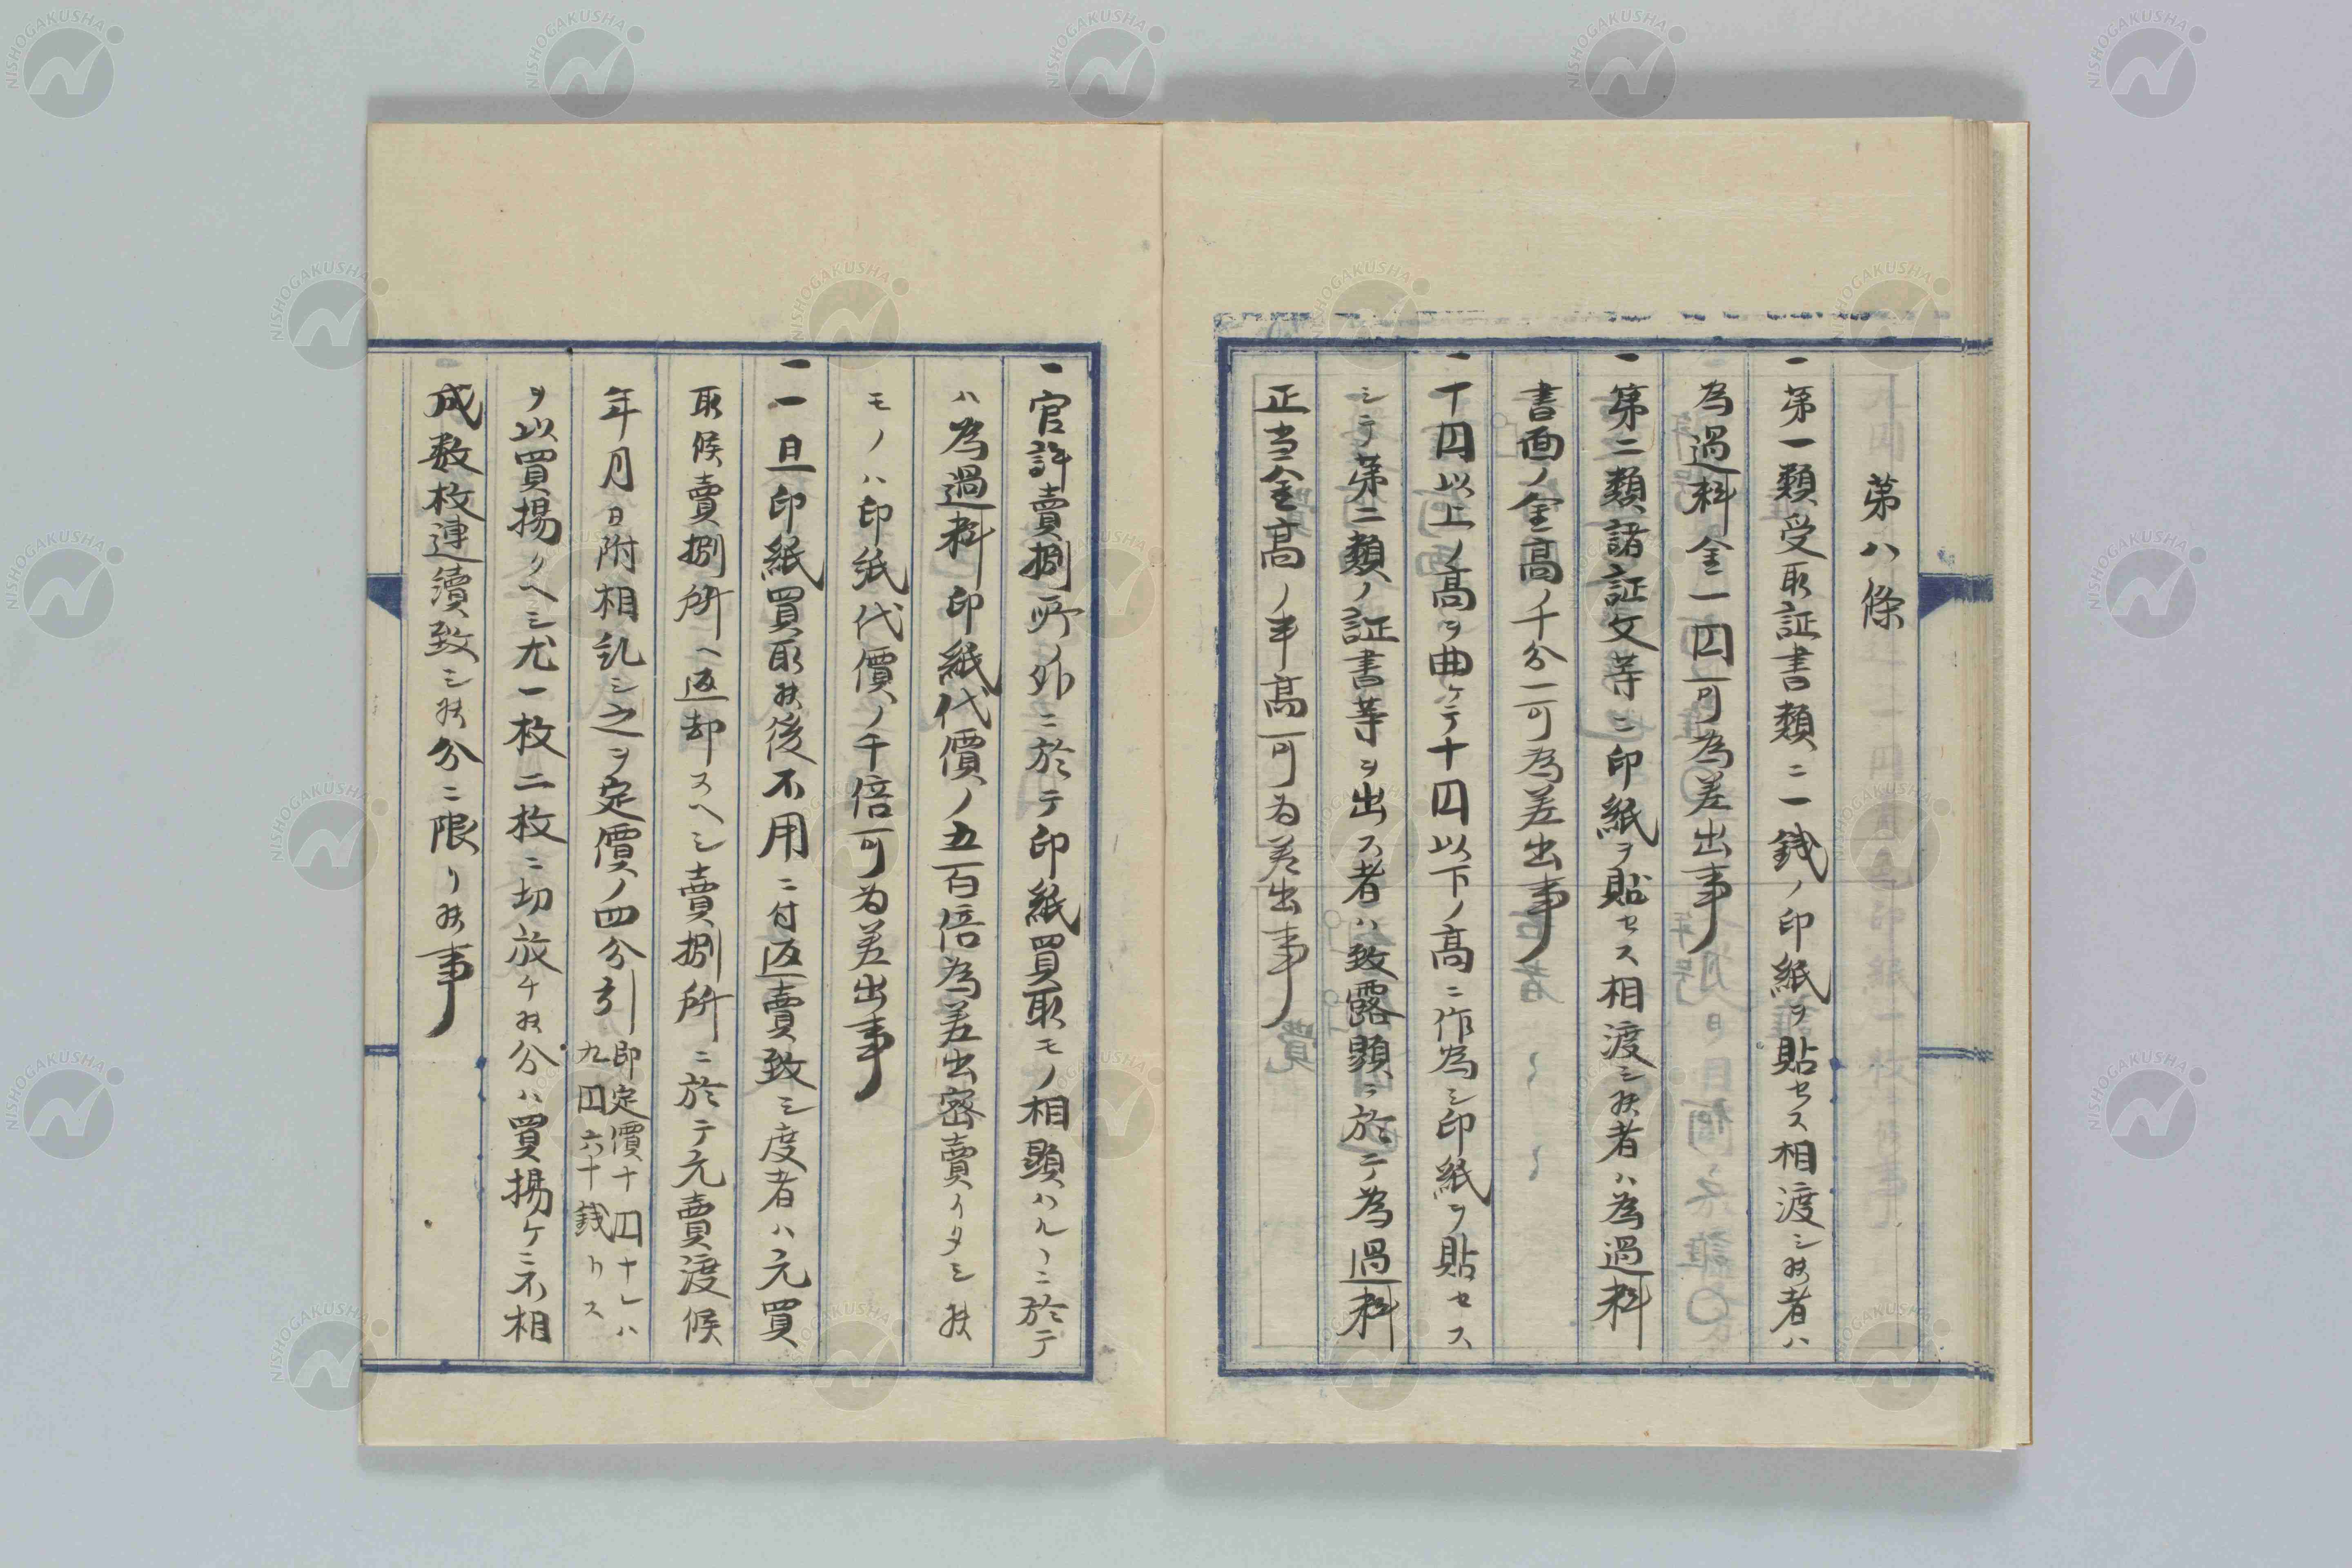 第八條
一第一類受取証書類ニ一銭ノ印紙ヲ貼セス相渡シ候者ハ
為過料金一円可為差出事
一第二類諸証文等ニ印紙ヲ貼セス相渡シ候者ハ為過料
書面ノ金高ノ千分一可為差出事
一十円以上ノ高ヲ曲ケテ十円以下ノ高ニ作為シ印紙ヲ貼セス
シテ第二類ノ証書等ヲ出ス者ハ致露顕ニ於テ為過料
正当金高ノ半高可为差出事
一官許賣捌所ノ外ニ於テ印紙買取モノ相顕ハルヽニ於テ
ハ為過料印紙代價ノ五百倍為差出密賣イタシ候
モノハ印紙代價ノ千倍可为差出事
一一旦印紙買取候後不用ニ付返賣致シ度者ハ元買
取候賣捌所ヘ返却スヘシ賣捌所ニ於テ元賣渡候
年月日附相糺シ之ヲ定價ノ四分引即定價十円ナレハ
九円六十銭トス
ヲ以買揚クヘシ尤一枚二枚ニ切放チ候分ハ買揚ケニ不相
成数枚連續致シ候分ニ限リ候事
NISHOGAKUSHA